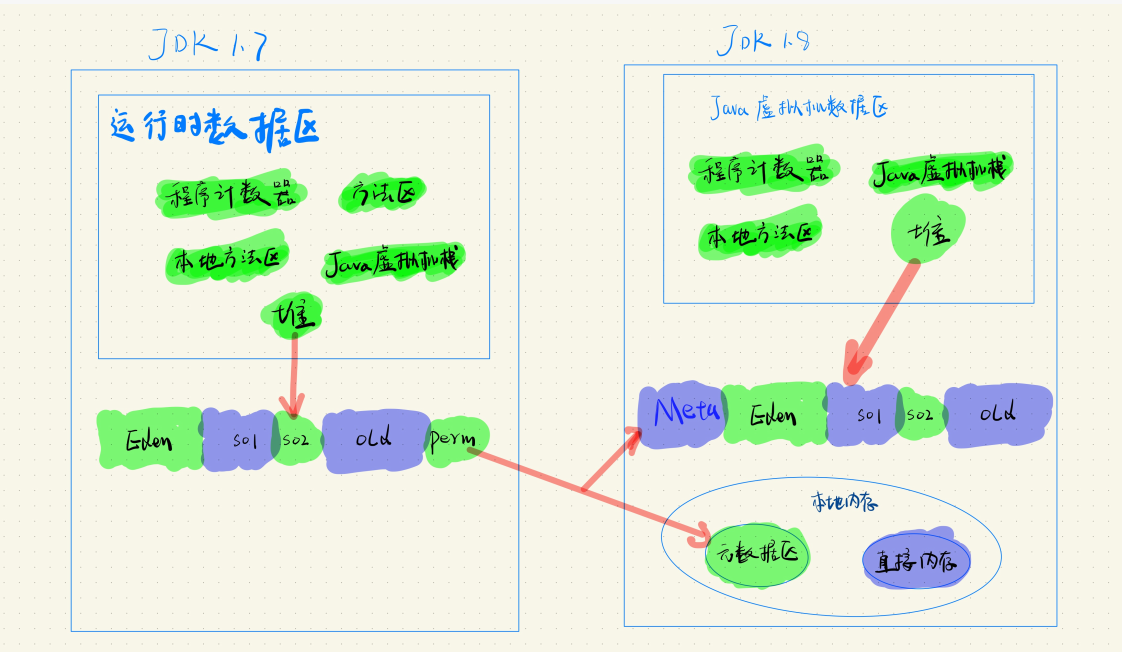 JDK 1.7
运行时数据区
程序计数器 方法区
本地方法区 Java虚拟机栈
堆
Eden so1 so2 OLd perm
JDK 1.8
Java虚拟机数据区
程序计数器 Java虚拟机栈
本地方法区 堆
Meta Eden so1 so2 OLd
本地内存
元数据区 直接内存